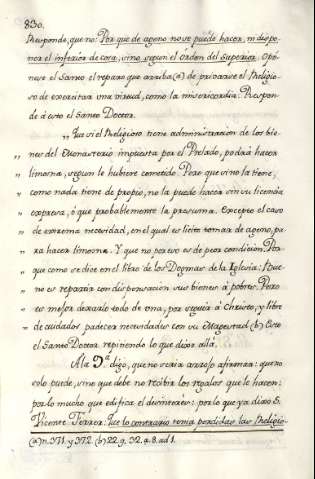 830.
Responde, que no: Por que de ageno no se puede hacer, ni dispo-
ner el inferior de cosa, sino segun el orden del superior. Opo-
nese el Santo el reparo que arriba (a) de privarse el Religio-
so de exercitar una virtud, como la misericordia. Respon-
de à esto el Santo Doctor.
„ Que si el Religioso tiene administracion de los bie-
„ nes del Monasterio impuesta por el Prelado, podrà hacer
„ limosna, segun le hubiere cometido. Pero que si no la tiene,
„ como nada tiene de propio, no la puede hacer sin su licencia
„ expresa, ò que probablemente la presuma. Excepto el caso
„ de extrema necesidad, en el qual es licito tomar de ageno, pa-
„ ra hacer limosna. Y que no por eso es de peor condicion. Por-
„ que como se dice en el libro de los Dogmas de la Iglesia: Bue-
„ no es repartir con dispensacion sus bienes à pobres. Pero
„ es mejor dexarlo todo de una, por seguir à Christo, y libre
„ de cuidados padecer necesidades con su Magestad (b) Esto
el Santo Doctor repitiendo lo que dixo allà.
A la 9.ª digo, que no seria arrojo afirmar: que no
solo puede, sino que debe no recibir los regalos que le hacen:
por lo mucho que edifica el desinterès: por lo que ya dixo S.
Vicente Ferrer: que lo contrario tenia perdidas las Religio-
(a) n. 371. y 372. (b) 22. q. 32. a. 8. ad 1.